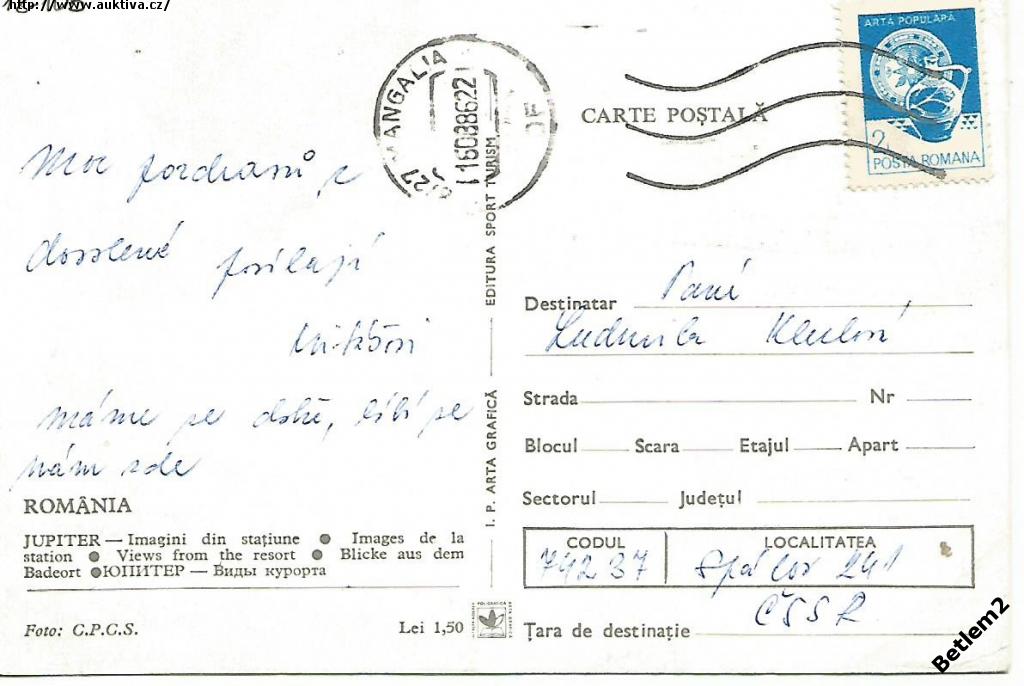 http://www.auktiva.cz/
ARTA POPULARĂ
MANGALIA
16088622
CARTE POȘTALĂ
2
POSTA ROMANA
Moc pozdravů z
dovolené posílají
máme se dobře, líbí se
nám zde
EDITURA SPORT TURISM
I. P. ARTA GRAFICĂ
Destinatar Paní
Ludmila
Strada Nr
Blocul Scara Etajul Apart
Sectorul Județul
CODUL LOCALITATEA
74237 Spálov 241
ČSSR
Țara de destinație
ROMÂNIA
JUPITER — Imagini din stațiune ● Images de la
station ● Views from the resort ● Blicke aus dem
Badeort ● ЮПИТЕР — Виды курорта
Foto: C.P.C.S. Lei 1,50
Betlem2